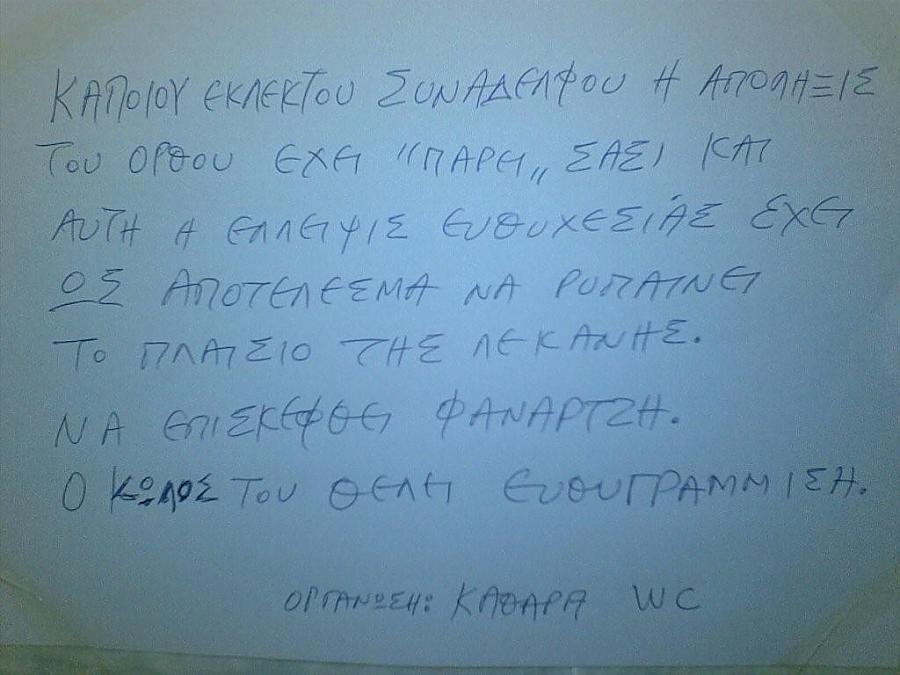 ΚΑΠΟΙΟΥ ΕΚΛΕΚΤΟΥ ΣΥΝΑΔΕΛΦΟΥ Η ΑΠΟΛΗΞΙΣ
ΤΟΥ ΟΡΘΟΥ ΕΧΕΙ "ΠΑΡΕΙ„ ΣΑΣΙ ΚΑΙ
ΑΥΤΗ Η ΕΛΛΕΙΨΙΣ ΕΥΘΥΧΕΣΙΑΣ ΕΧΕΙ
ΩΣ ΑΠΟΤΕΛΕΣΜΑ ΝΑ ΡΥΠΑΙΝΕΙ
ΤΟ ΠΛΑΙΣΙΟ ΤΗΣ ΛΕΚΑΝΗΣ.
ΝΑ ΕΠΙΣΚΕΦΘΕΙ ΦΑΝΑΡΤΖΗ.
Ο ΚΩΛΟΣ ΤΟΥ ΘΕΛΕΙ ΕΥΘΥΓΡΑΜΜΙΣΗ.
ΟΡΓΑΝΩΣΗ: ΚΑΘΑΡΑ WC